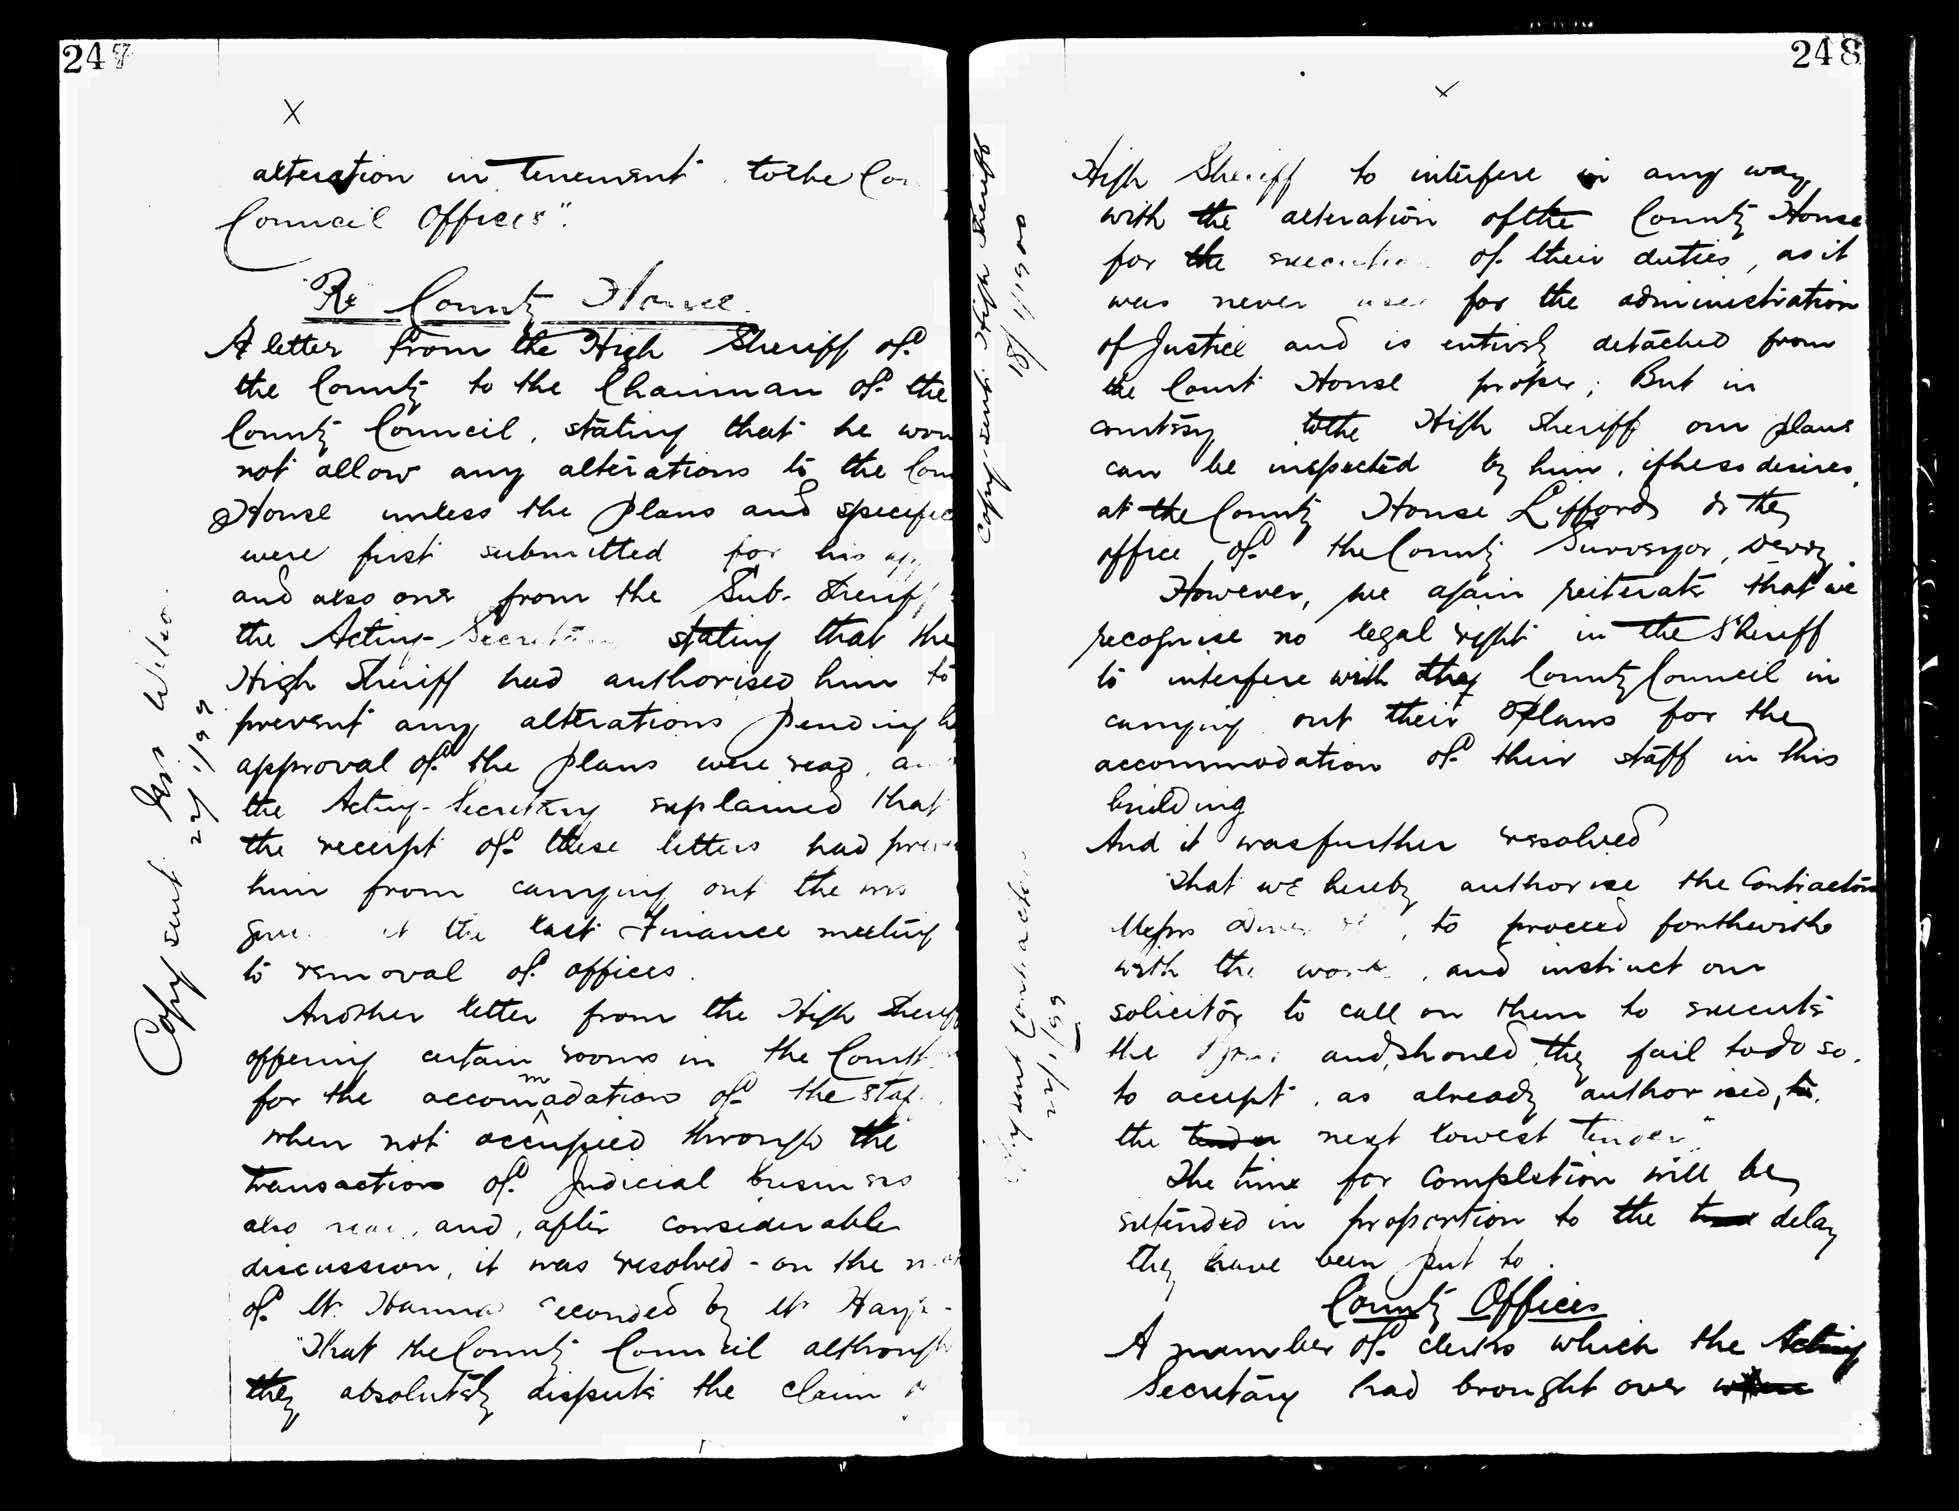 247
X
alteration in tenement to the
Council Offices".
"Re" County House.
A letter from the High Sheriff of
the County to the Chairman of the
County Council, stating that he
not allow any alterations to the
House unless the plans and
were first submitted for his
and also one from the Sub-Sheriff
the Acting-Secretary stating that the
High Sheriff had authorised him to
prevent any alterations pending
approval of the plans were read,
the Acting-Secretary explained that
the receipt of these letters had
him from carrying out the
at the last Finance meeting
to removal of offices.
Another letter from the High Sheriff
offering certain rooms in the
for the accommadation of the
when not occupied through the
transaction of Judicial business
also and, after considerable
discussion, it was resolved - on the
of Mr. Hanna seconded by Mr
"That the County Council although
they absolutely dispute the claim
Copy sent
27/1/99
248
x
High Sheriff to interfere in any way
with the alteration of the County House
for the execution of their duties, as it
was never used for the administration
of Justice and is entirely detached from
the Court House proper; But in
courtesy to the High Sheriff our plans
can be inspected by him, if he so desires,
at the County House Lifford or the
office of the County Surveyor, Derry.
However, we again reiterate that we
recognise no legal right in the Sheriff
to interfere with the County Council in
carrying out their plans for the
accommodation of their staff in this
building
And it was further resolved
"That we hereby authorise the Contractors
Messrs to proceed forthwith
with the work, and instruct our
solicitor to call on them to execute
the and, should they fail to do so.
to accept, as already authorised,
the next lowest tender".
The time for completion will be
extended in proportion to the delay
they have been put to.
County Offices
A number of clerks which the Acting
Secretary had brought over
Copy sent High Sheriff
Copy sent Contractors
27/1/99